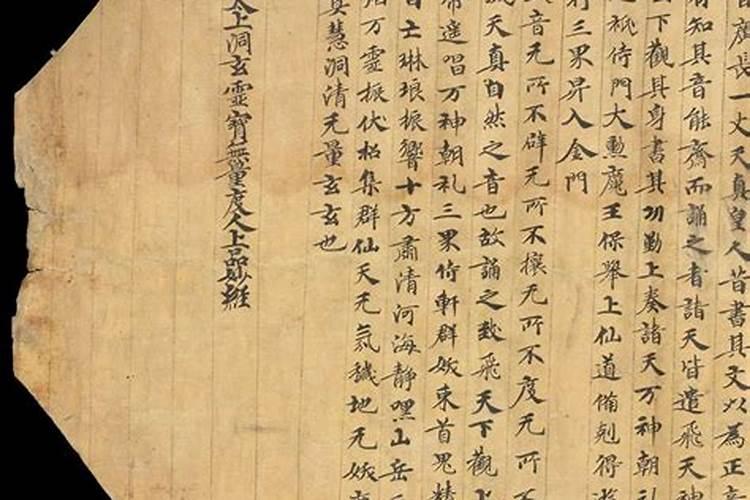 廣長一丈天真皇人昔書其文以為正音
有知其音能齋而誦之者諸天皆遣飛天神
下觀其身書其功勤上奏諸天万神朝礼
祇侍門大勲魔王保舉上仙道備剋得遊
行三界昇入金門
音无所不辟无所不攘无所不度无所不
成天真自然之音也故誦之致飛天下觀上
帝遥唱万神朝礼三界侍軒群妖束首鬼精
自亡琳琅振響十方肅清河海静嘿山岳
烟万靈振伏招集群仙天无氛穢地无妖
冥慧洞清无量玄玄也
太上洞玄靈寶無量度人上品妙經